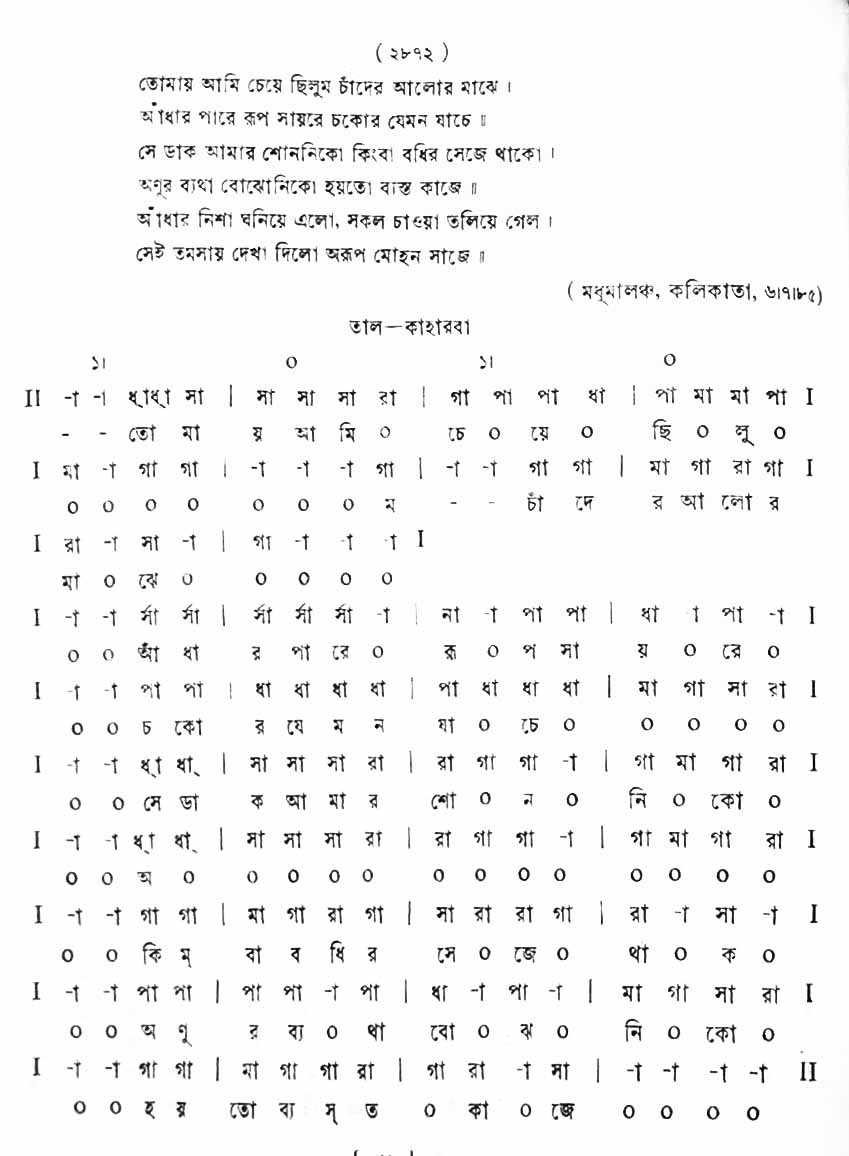 ( ২৮৭২ )
তোমায় আমি চেয়ে ছিলুম চাঁদের আলোর মাঝে ।
আঁধার পারে রূপ সায়রে চকোর যেমন যাচে ॥
সে ডাক আমার শোননিকো কিংবা বধির সেজে থাকো ।
অণুর ব্যথা বোঝোনিকো হয়তো ব্যস্ত কাজে ॥
আঁধার নিশা ঘনিয়ে এলো, সকল চাওয়া তলিয়ে গেল ।
সেই তমসায় দেখা দিলো অরূপ মোহন সাজে ॥
( মধুমালঞ্চ, কলিকাতা, ৬।৭।৮৫)
তাল—কাহারবা
১। ০ ১। ০
II -া -া ধ্ধ্ সা | সা সা সা রা | গা পা পা ধা | পা মা মা পা I
- - তো মা য় আ মি ০ চে ০ য়ে ০ ছি ০ লু ০
I মা -া গা গা | -া -া -া গা | -া -া গা গা | মা গা রা গা I
০ ০ ০ ০ ০ ০ ০ ম - - চাঁ দে র আ লো র
I রা -া সা -া | গা -া -া -া I
মা ০ ঝে ০ ০ ০ ০ ০
I -া -া র্সা র্সা | র্সা র্সা র্সা -া | না -া পা পা | ধা -া পা -া I
০ ০ আঁ ধা র পা রে ০ রূ ০ প সা য় ০ রে ০
I -া -া পা পা | ধা ধা ধা ধা | পা ধা ধা ধা | মা গা সা রা I
০ ০ চ কো র যে ম ন যা ০ চে ০ ০ ০ ০ ০
I -া -া ধ্া ধ্া | সা সা সা রা | রা গা গা -া | গা মা গা রা I
০ ০ সে ডা ক আ মা র শো ০ ন ০ নি ০ কো ০
I -া -া ধ্া ধ্া | সা সা সা রা | রা গা গা -া | গা মা গা রা I
০ ০ অ ০ ০ ০ ০ ০ ০ ০ ০ ০ ০ ০ ০ ০
I -া -া গা গা | মা গা রা গা | সা রা রা গা | রা -া সা -া I
০ ০ কি ম্ বা ব ধি র সে ০ জে ০ থা ০ ক ০
I -া -া পা পা | পা পা -া পা | ধা -া পা -া | মা গা সা রা I
০ ০ অ ণু র ব্য ০ থা বো ০ ঝ ০ নি ০ কো ০
I -া -া গা গা | মা গা গা রা | গা রা -া সা | -া -া -া -া II
০ ০ হ য় তো ব্য স্ ত ০ কা ০ জে ০ ০ ০ ০